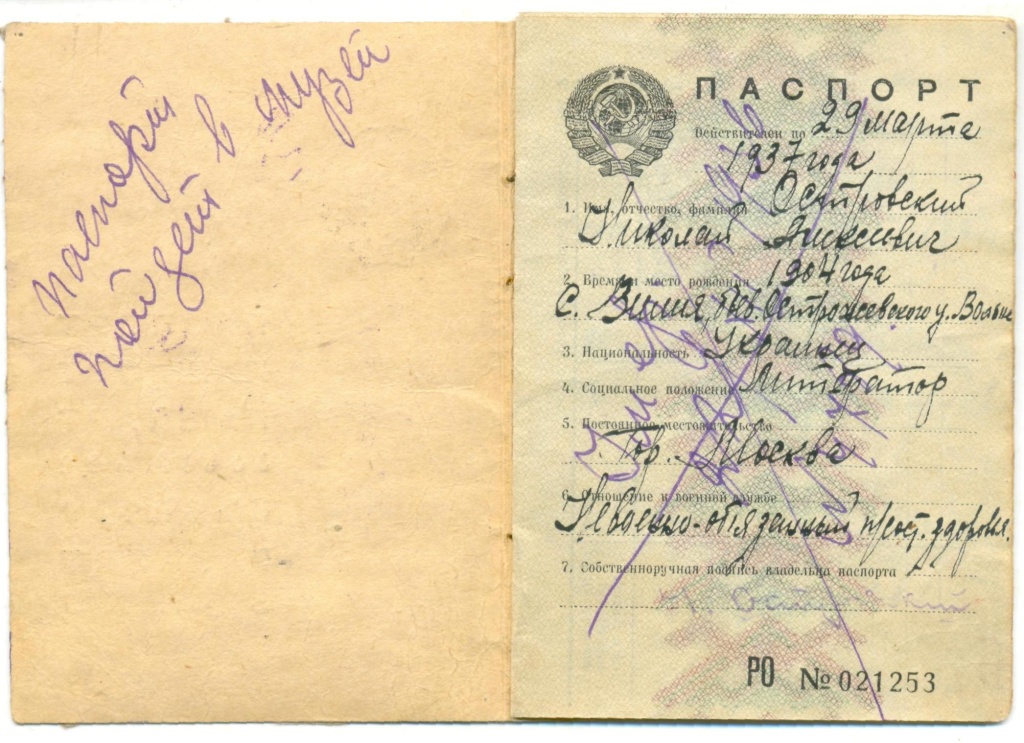 паспорт
пойдет в музей
ПАСПОРТ
Действителен по 29 марта
1937 года
1. Имя, отчество, фамилия Островский
Николай Алексеевич
2. Время и место рождения 1904 года
с. Вилия, Острожевского у. Волын
3. Национальность Украинец
4. Социальное положение Литератор
5. Постоянное местожительство
Гор. Москва
6. Отношение к военной службе
Невоенно-обязанный по сост. здоровья.
7. Собственноручная подпись владельца паспорта
Н. Островский
РО № 021253
Умер